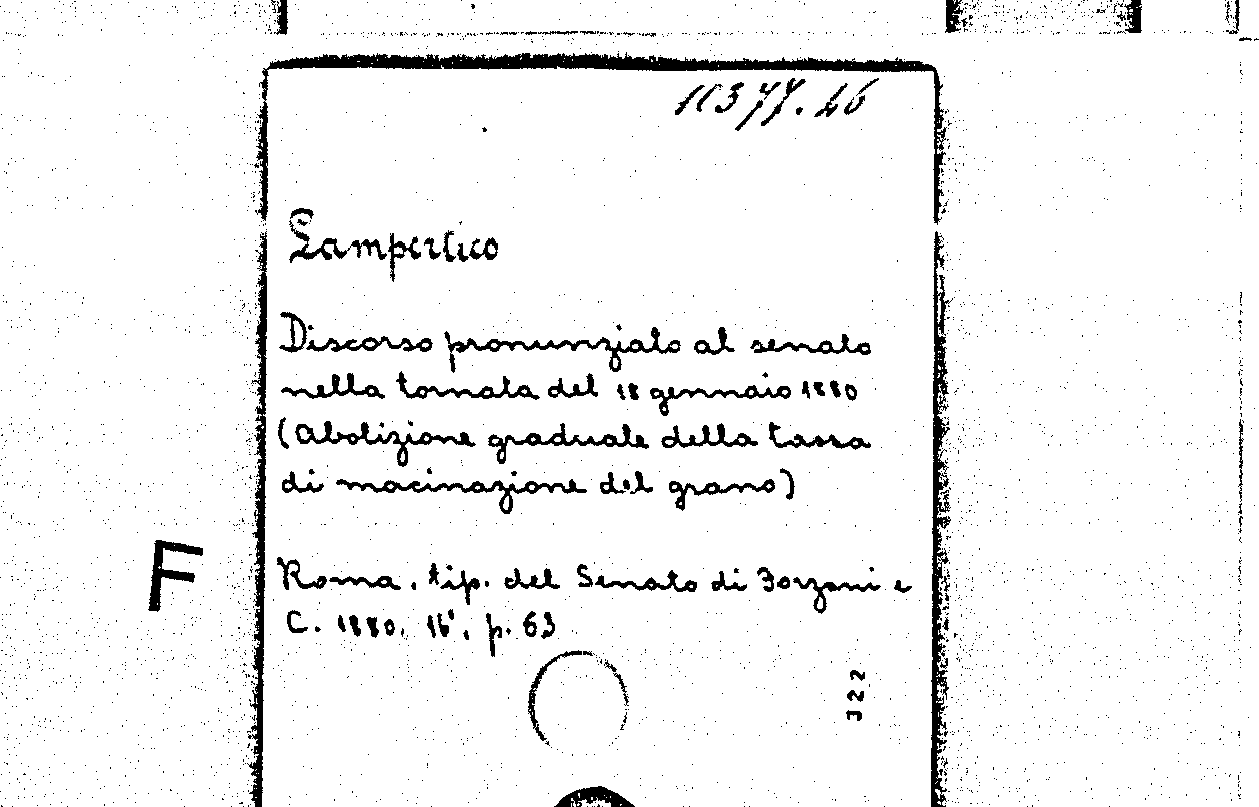 10377.26
Lampertico
Discorso pronunziato al senato
nella tornata del 18 gennaio 1880
(Abolizione graduale della tassa
di macinazione del grano)
F
Roma, tip. del Senato di Forzani e
C. 1880. 16°. p. 63
322